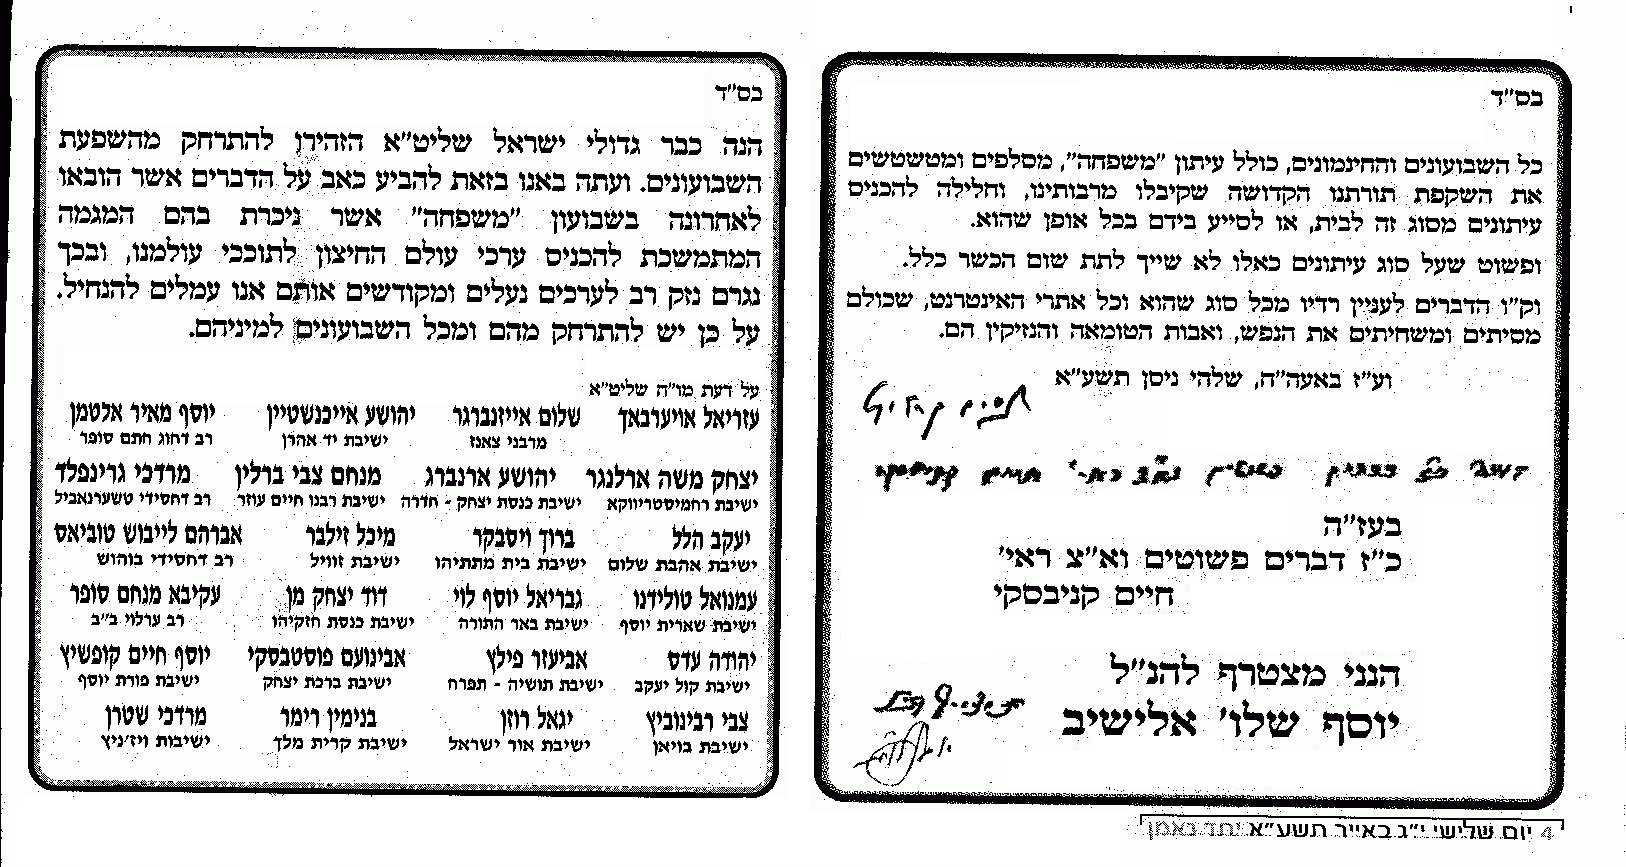 בס"ד
כל השבועונים והחינמונים, כולל עיתון "משפחה", מסלפים ומטשטשים
את השקפת תורתנו הקדושה שקיבלו מרבותינו, וחלילה להכניס
עיתונים מסוג זה לבית, או לסייע בידם בכל אופן שהוא.
ופשוט שעל סוג עיתונים כאלו לא שייך לתת שום הכשר כלל.
וק"ו הדברים לעניין רדיו מכל סוג שהוא וכל אתרי האינטרנט, שכולם
מסיתים ומשחיתים את הנפש, ואבות הטומאה והנזיקין הם.
וע"ז באעה"ח, שלהי ניסן תשע"א
בעז"ה
כ"ז דברים פשוטים וא"צ ראי'
חיים קניבסקי
הנני מצטרף להנ"ל
יוסף שלו' אלישיב
בס"ד
הנה כבר גדולי ישראל שליט"א הזהירו להתרחק מהשפעת
השבועונים. ועתה באנו בזאת להביע כאב על הדברים אשר הובאו
לאחרונה בשבועון "משפחה" אשר ניכרת בהם המגמה
המתמשכת להכניס ערכי עולם החיצון לתוככי עולמנו, ובכך
נגרם נזק רב לערכים נעלים ומקודשים אותם אנו עמלים להנחיל.
על כן יש להתרחק מהם ומכל השבועונים למיניהם.
על דעת מו"ה שליט"א
עזריאל אויערבאך שלום אייזנברגר יהושע אייכנשטיין יוסף מאיר אלטמן
מרבני צאנז ישיבת יד אהרן רב דחוג חתם סופר
יצחק משה ארלנגר יהושע ארנברג מנחם צבי ברלין מרדכי גרינפלד
ישיבת רחמיסטריווקא ישיבת כנסת יצחק - חדרה ישיבת רבנו חיים עוזר רב דחסידי טשערנאביל
יעקב הלל ברוך ויסבקר מיכל זילבר אברהם לייבוש טוביאס
ישיבת אהבת שלום ישיבת בית מתתיהו ישיבת זוויל רב דחסידי בוהוש
עמנואל טולידנו גבריאל יוסף לוי דוד יצחק מן עקיבא מנחם סופר
ישיבת שארית יוסף ישיבת באר התורה ישיבת כנסת חזקיהו רב ערלוי ב"ב
יהודה עדס אביעזר פילץ אבינועם פוסטבסקי יוסף חיים קופשיץ
ישיבת קול יעקב ישיבת תושיה - תפרח ישיבת ברכת יצחק ישיבת פורת יוסף
צבי רבינוביץ יגאל רוזן בנימין רימר מרדכי שטרן
ישיבת בויאן ישיבת אור ישראל ישיבת קרית מלך ישיבות ויז'ניץ
4 יום שלישי י"ג באייר תשע"א יתד נאמן